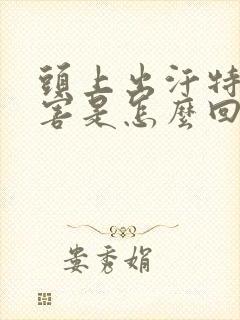 頭上出汗特
害是怎麼回
娄秀娟